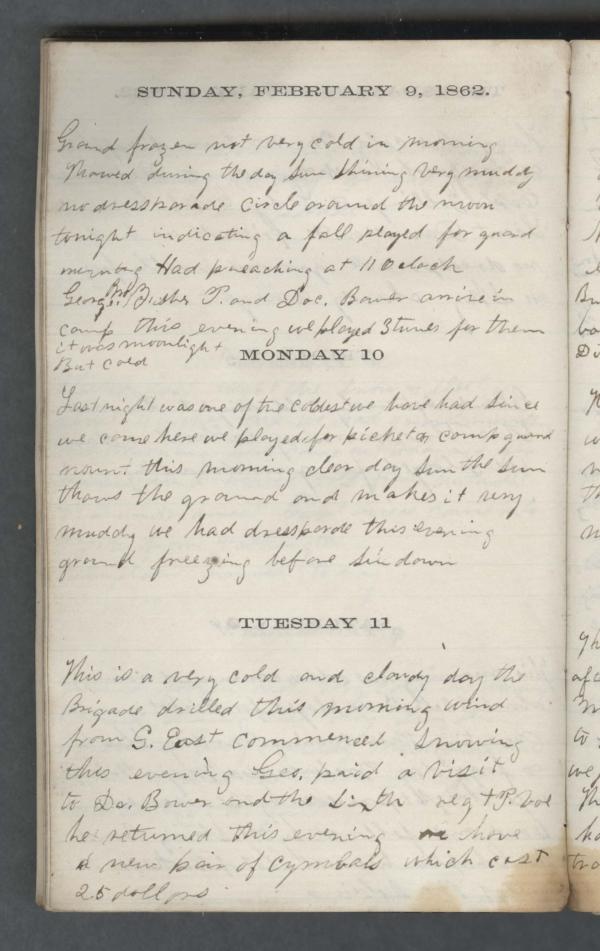 SUNDAY, FEBRUARY 9, 1862.
Ground frozen not very cold in morning
Thawed during the day Sun Shining very muddy
no dressparade Circle around the moon
tonight indicating a fall played for guard
mounting Had preaching at 11 Oclock
George Bro P. and Doc. Bower arrive in
camp this evening we played 3 tunes for them
it was moonlight
But cold
MONDAY 10
Last night was one of the coldest we have had Since
we came here we played for picket or camp guard
mount this morning clear day Sun the Sun
thaws the ground and makes it very
muddy we had dressparade this evening
ground freezing before Sundown
TUESDAY 11
This is a very cold and cloudy day the
Brigade drilled this morning wind
from S. East commenced Snowing
this evening Geo. paid a visit
to Dc. Bower and the Sixth regt P. Vol
he returned this evening we have
a new pair of Cymbals which cost
25 dollars